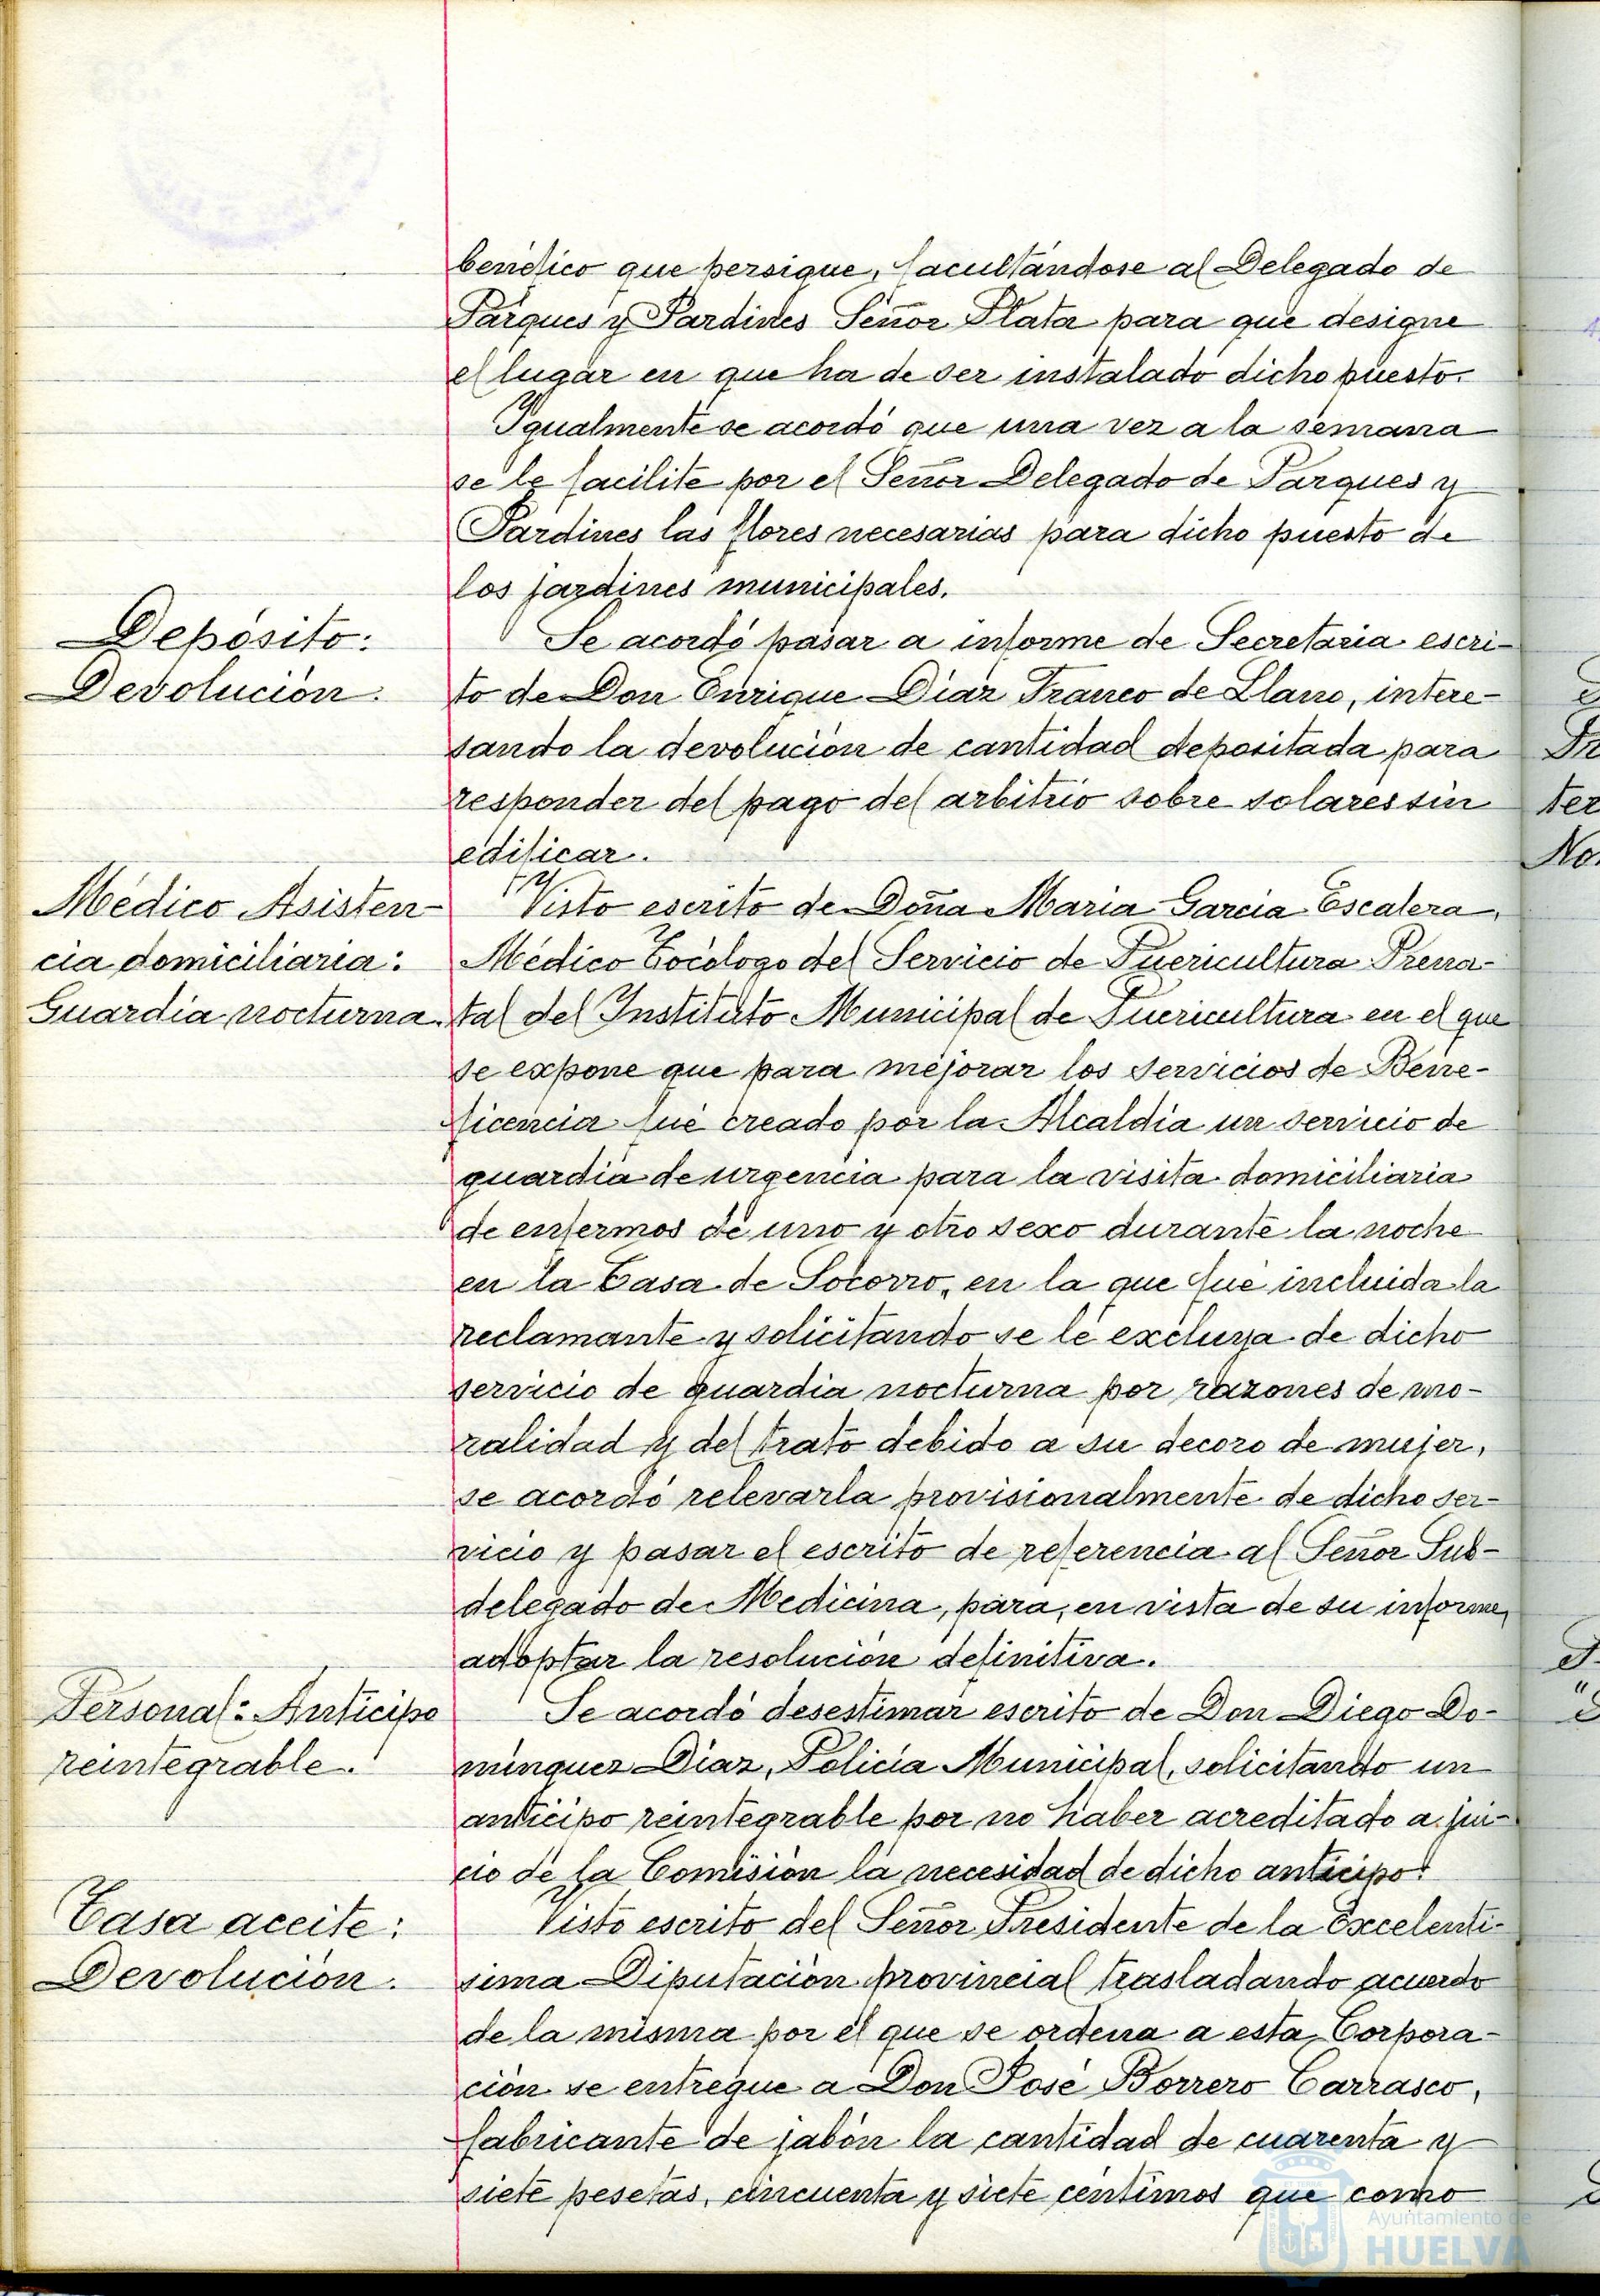 benéfico que persigue, facultándose al Delegado de
Parques y Jardines Señor Plata para que designe
el lugar en que ha de ser instalado dicho puesto.
Igualmente se acordó que una vez a la semana
se le facilite por el Señor Delegado de Parques y
Jardines las flores necesarias para dicho puesto de
los jardines municipales.
Depósito:
Devolución.
Se acordó pasar a informe de Secretaria escri-
to de Don Enrique Díaz Franco de Llano, intere-
sando la devolución de cantidad depositada para
responder del pago del arbitrio sobre solares sin
edificar.
Médico Asisten-
cia domiciliaria:
Guardia nocturna.
Visto escrito de Doña Maria Garcia Escalera,
Médico Tocólogo del Servicio de Puericultura Prena-
tal del Instituto Municipal de Puericultura en el que
se expone que para mejorar los servicios de Bene-
ficencia fué creado por la Alcaldía un servicio de
guardia de urgencia para la visita domiciliaria
de enfermos de uno y otro sexo durante la noche
en la Casa de Socorro, en la que fué incluida la
reclamante y solicitando se le excluya de dicho
servicio de guardia nocturna por razones de mo-
ralidad y del trato debido a su decoro de mujer,
se acordó relevarla provisionalmente de dicho ser-
vicio y pasar el escrito de referencia al Señor Sub-
delegado de Medicina, para, en vista de su informe,
adoptar la resolución definitiva.
Personal: Anticipo
reintegrable.
Se acordó desestimar escrito de Don Diego Do-
minguez Díaz, Policía Municipal, solicitando un
anticipo reintegrable por no haber acreditado a jui-
cio de la Comisión la necesidad de dicho anticipo.
Tasa aceite:
Devolución.
Visto escrito del Señor Presidente de la Excelentí-
sima Diputación provincial trasladando acuerdo
de la misma por el que se ordena a esta Corpora-
ción se entregue a Don José Borrero Carrasco,
fabricante de jabón la cantidad de cuarenta y
siete pesetas, cincuenta y siete céntimos que como
Ayuntamiento de
HUELVA